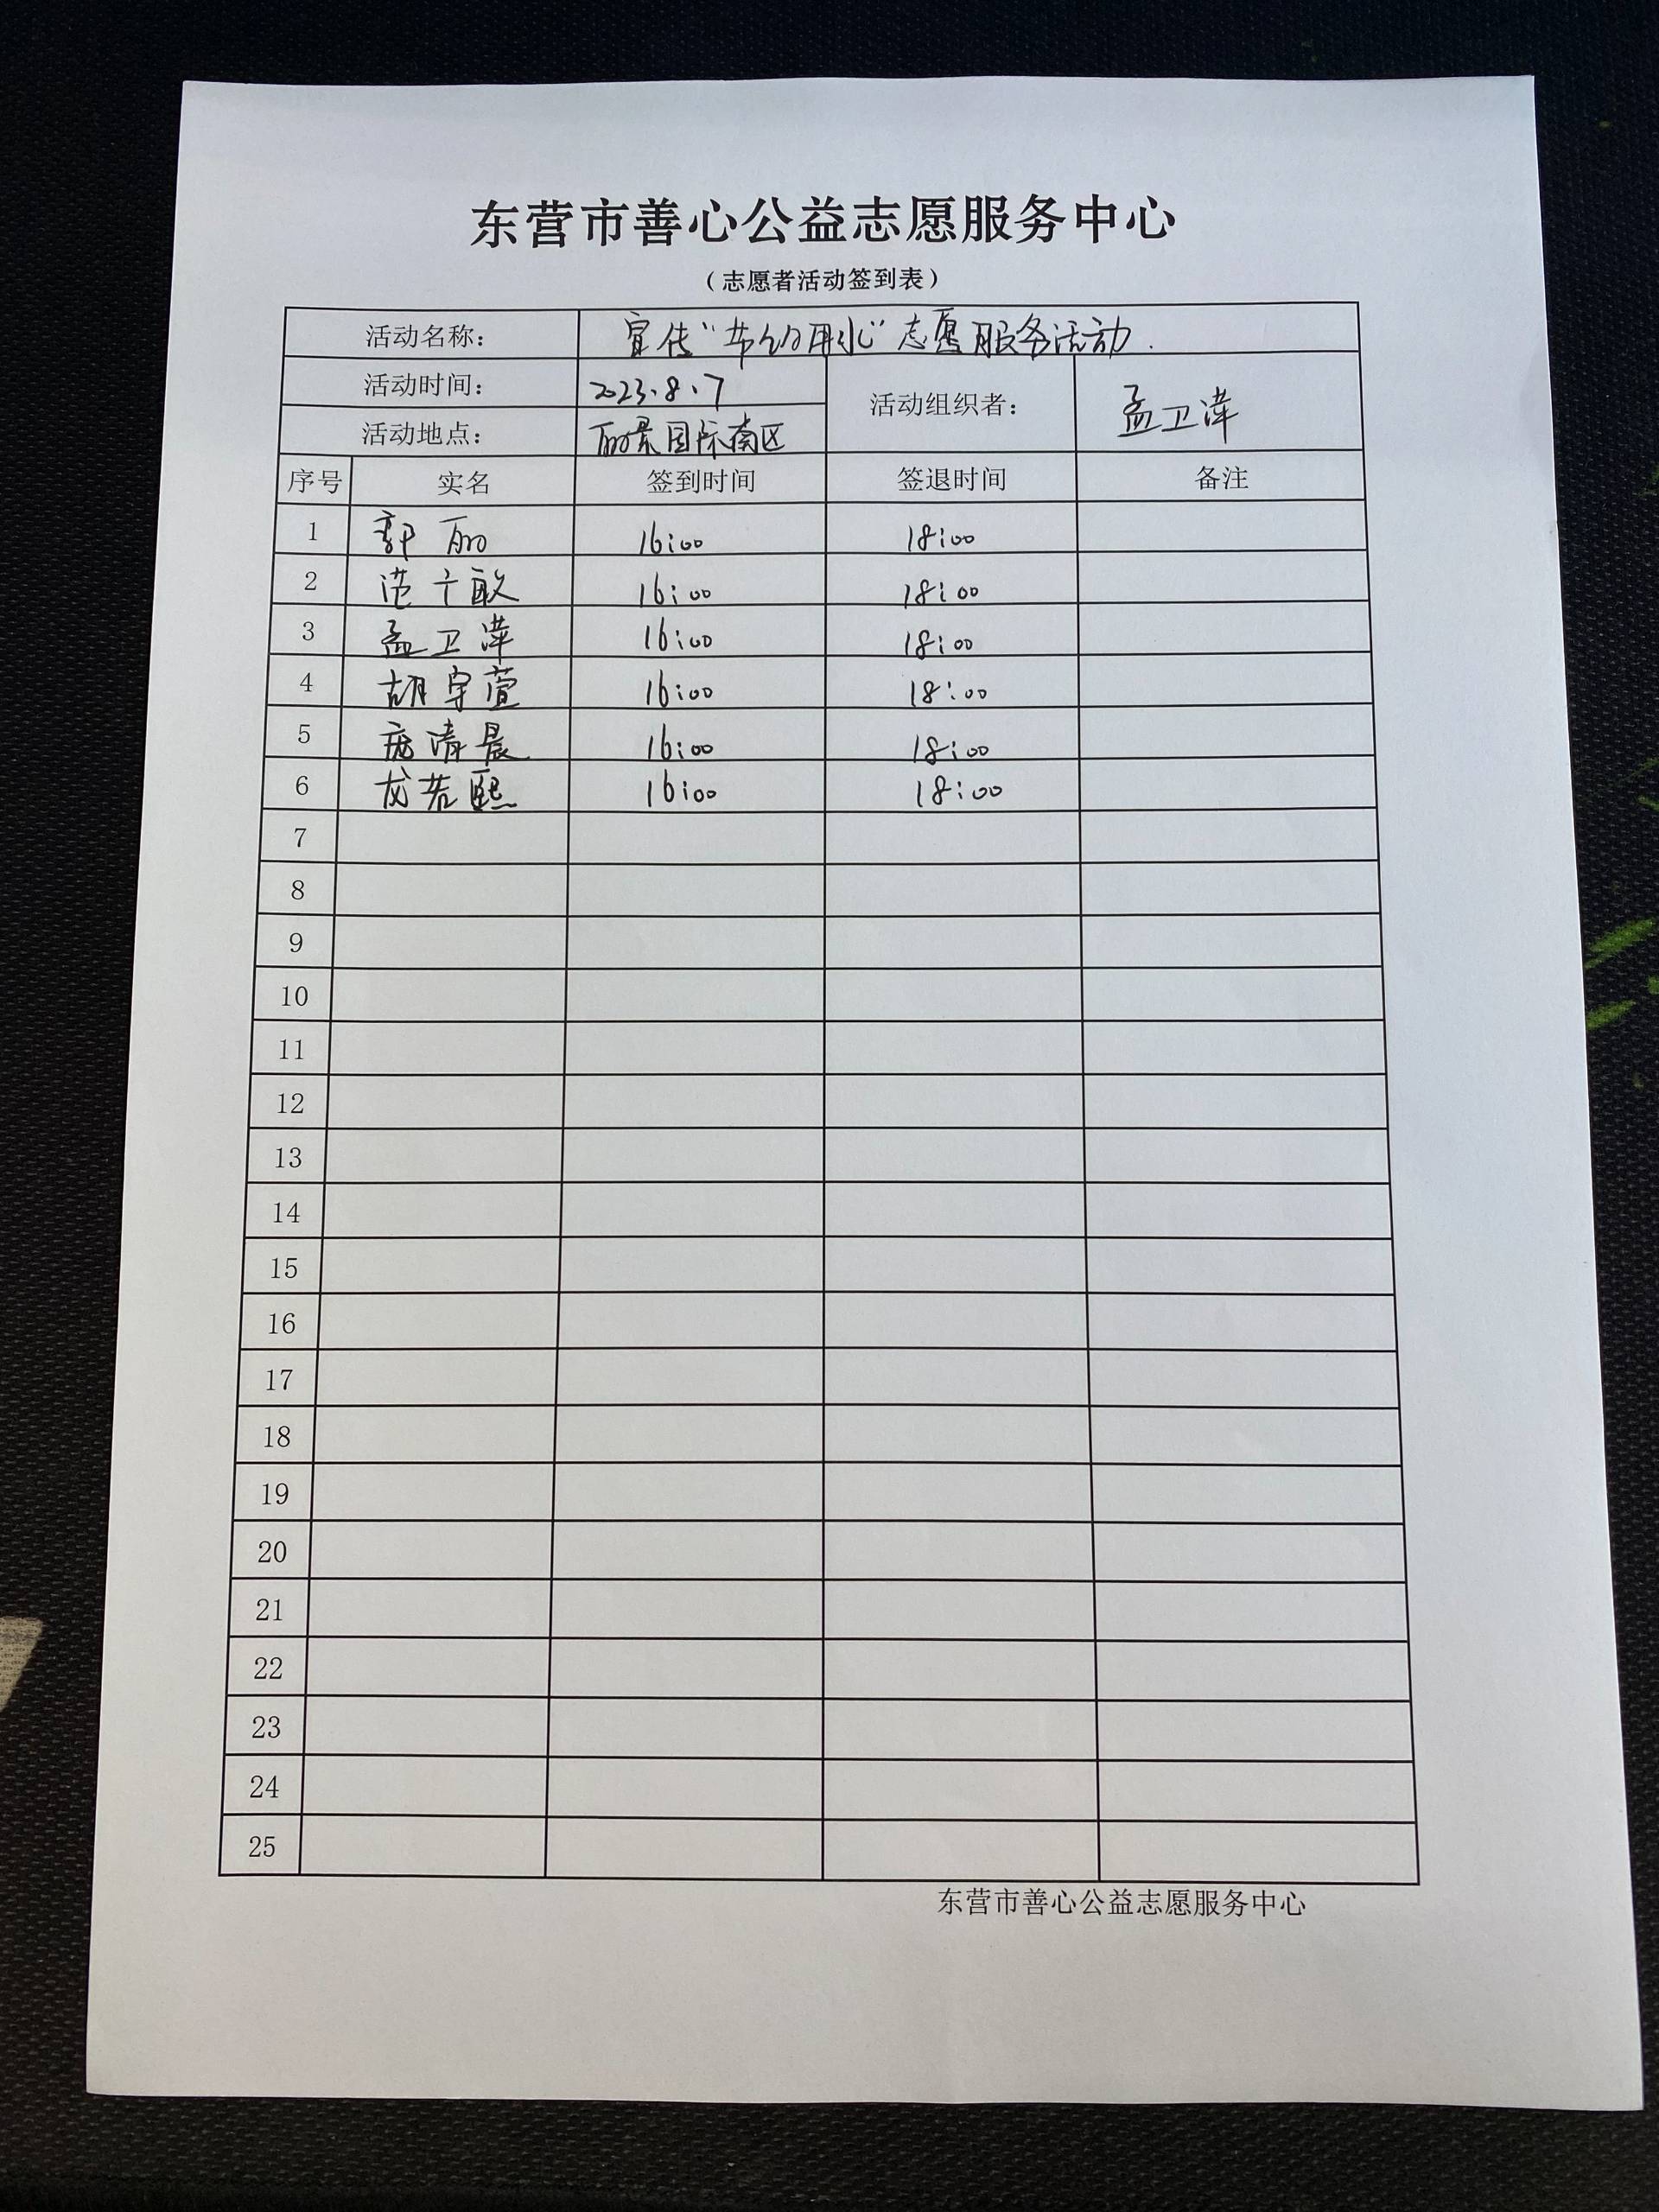 东营市善心公益志愿服务中心
（志愿者活动签到表）
活动名称： 宣传“节约用水”志愿服务活动.
活动时间： 2023.8.7 活动组织者： 孟卫萍
活动地点： 丽景国际南区
序号 实名 签到时间 签退时间 备注
1 郭丽 16:00 18:00
2 范敏 16:00 18:00
3 孟卫萍 16:00 18:00
4 胡宇萱 16:00 18:00
5 庞清晨 16:00 18:00
6 龙若熙 16:00 18:00
7
8
9
10
11
12
13
14
15
16
17
18
19
20
21
22
23
24
25
东营市善心公益志愿服务中心